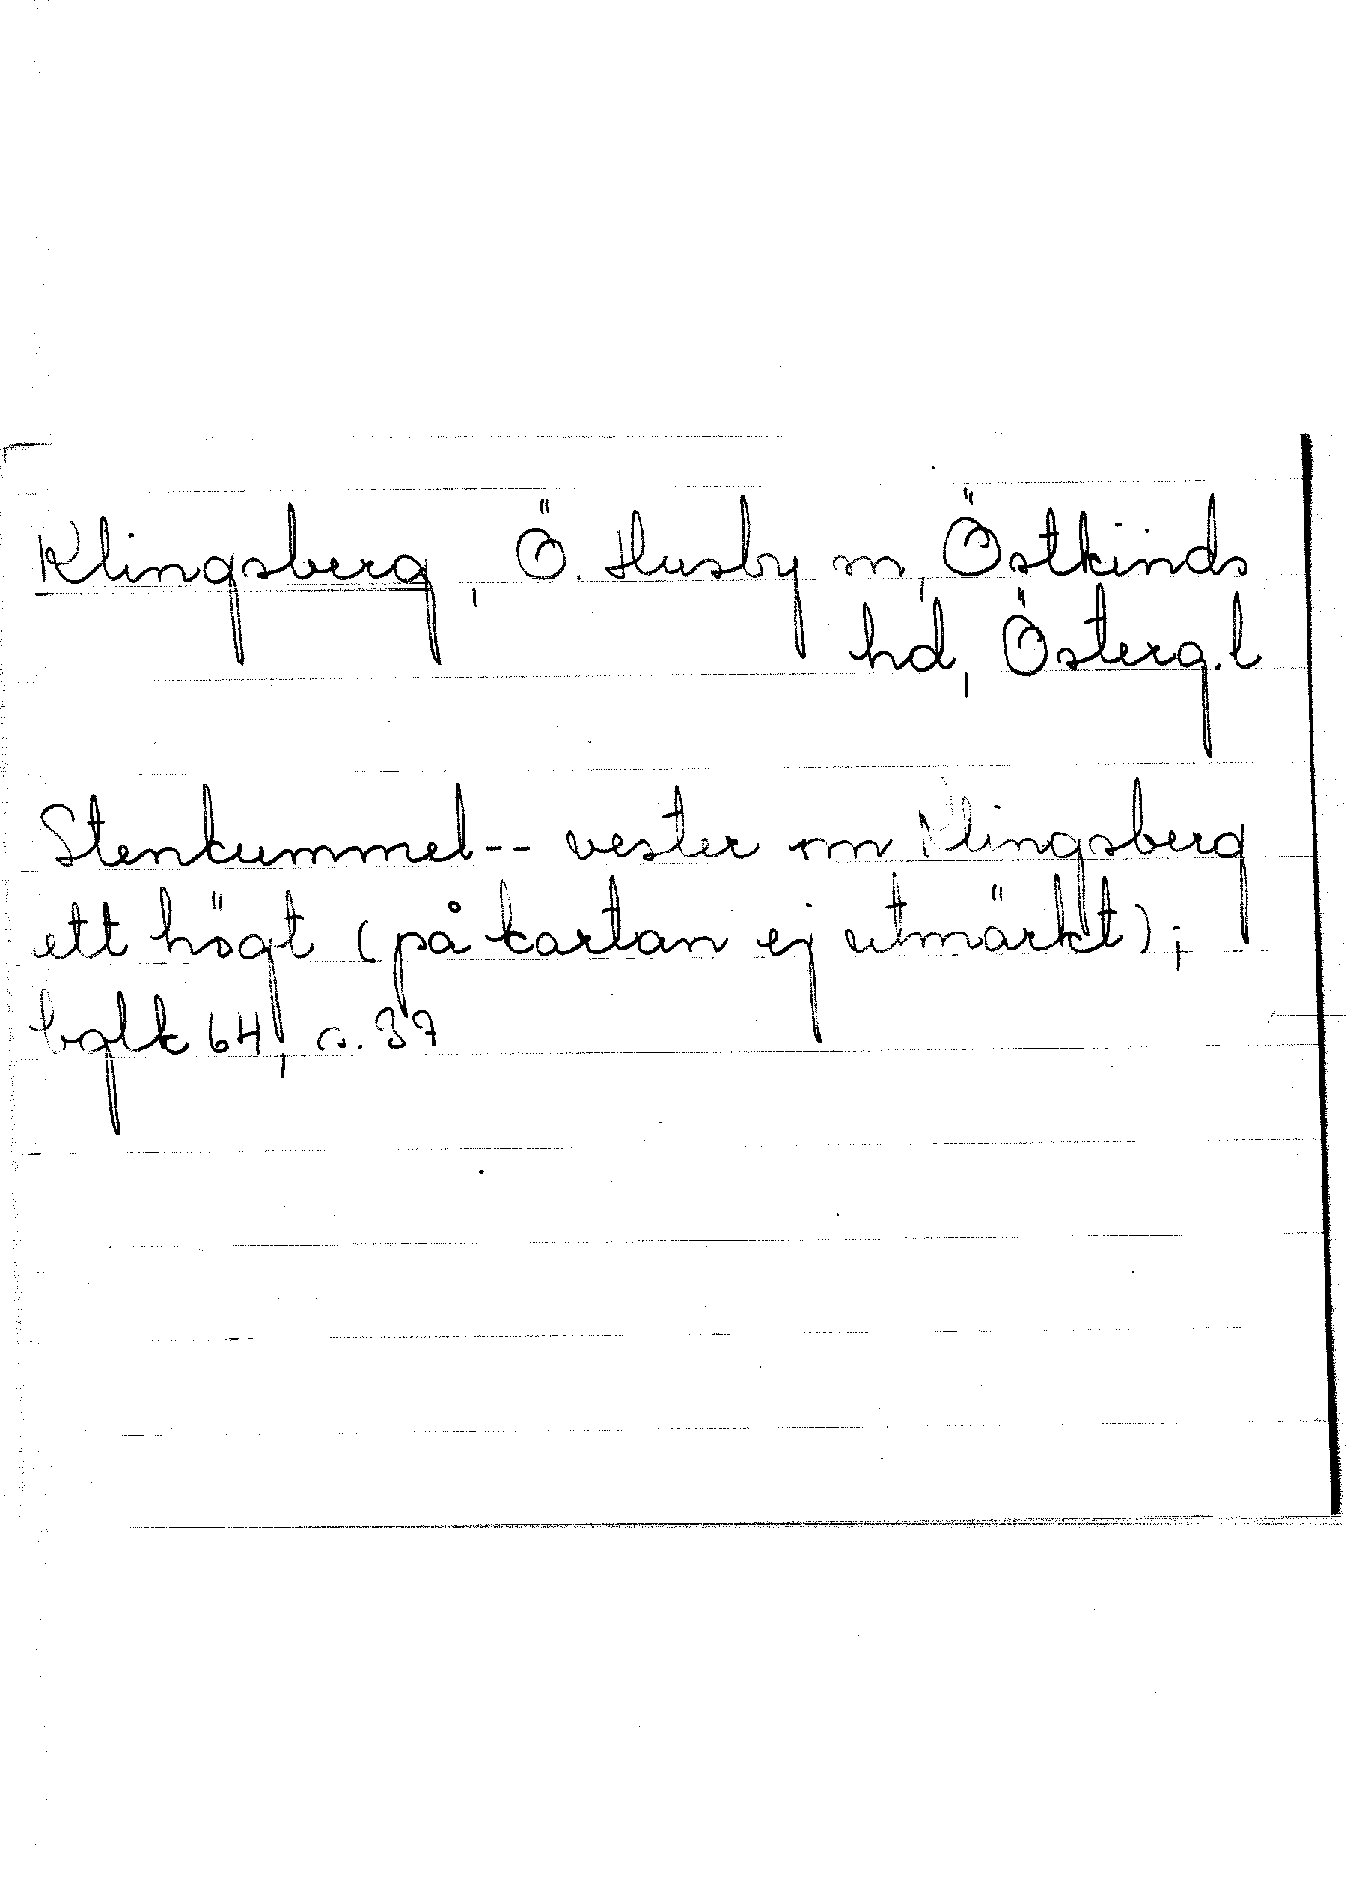 Klingsberg, Ö. Husby sn, Östkinds
hd, Österg.l
Stenkummel-- vester om Klingsberg
ett högt (på kartan ej utmärkt);
bglk 64, s. 37